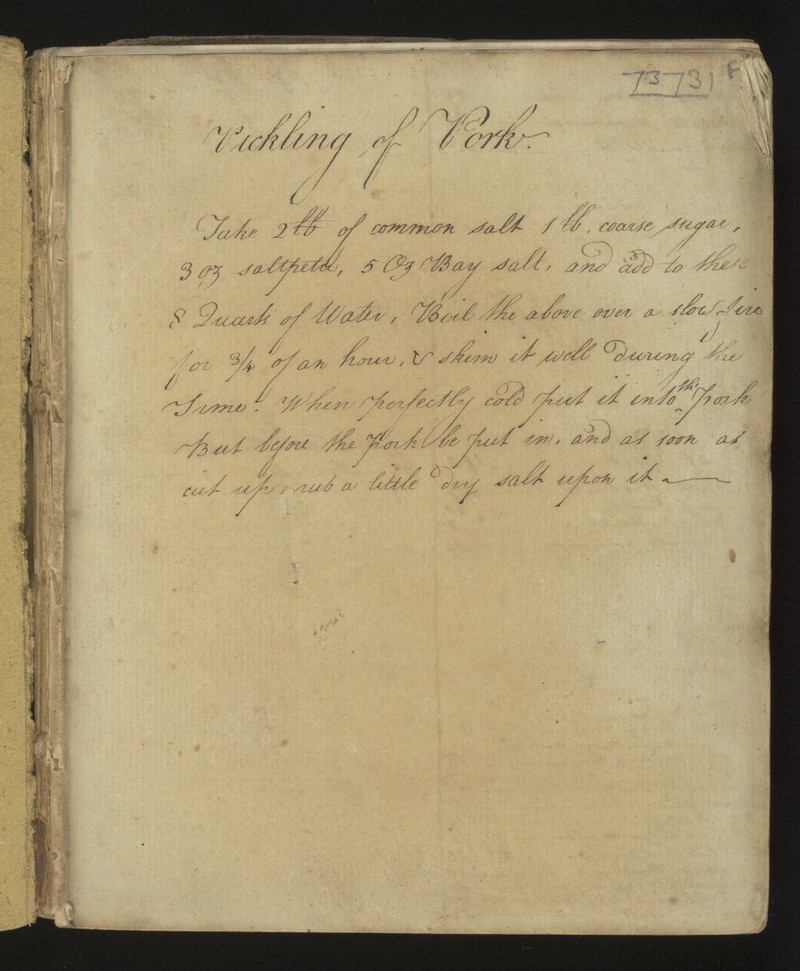 73731 F
Pickling of Pork.
Take 2 lb of common salt 1 lb. coarse sugar,
3 oz saltpetre, 5 Oz Bay salt, and add to these
8 Quarts of Water, Boil the above over a slow fire
for 3/4 of an hour, & skim it well during the
Time. When perfectly cold put it into the Pork
But before the Pork be put in, and as soon as
cut up, rub a little dry salt upon it